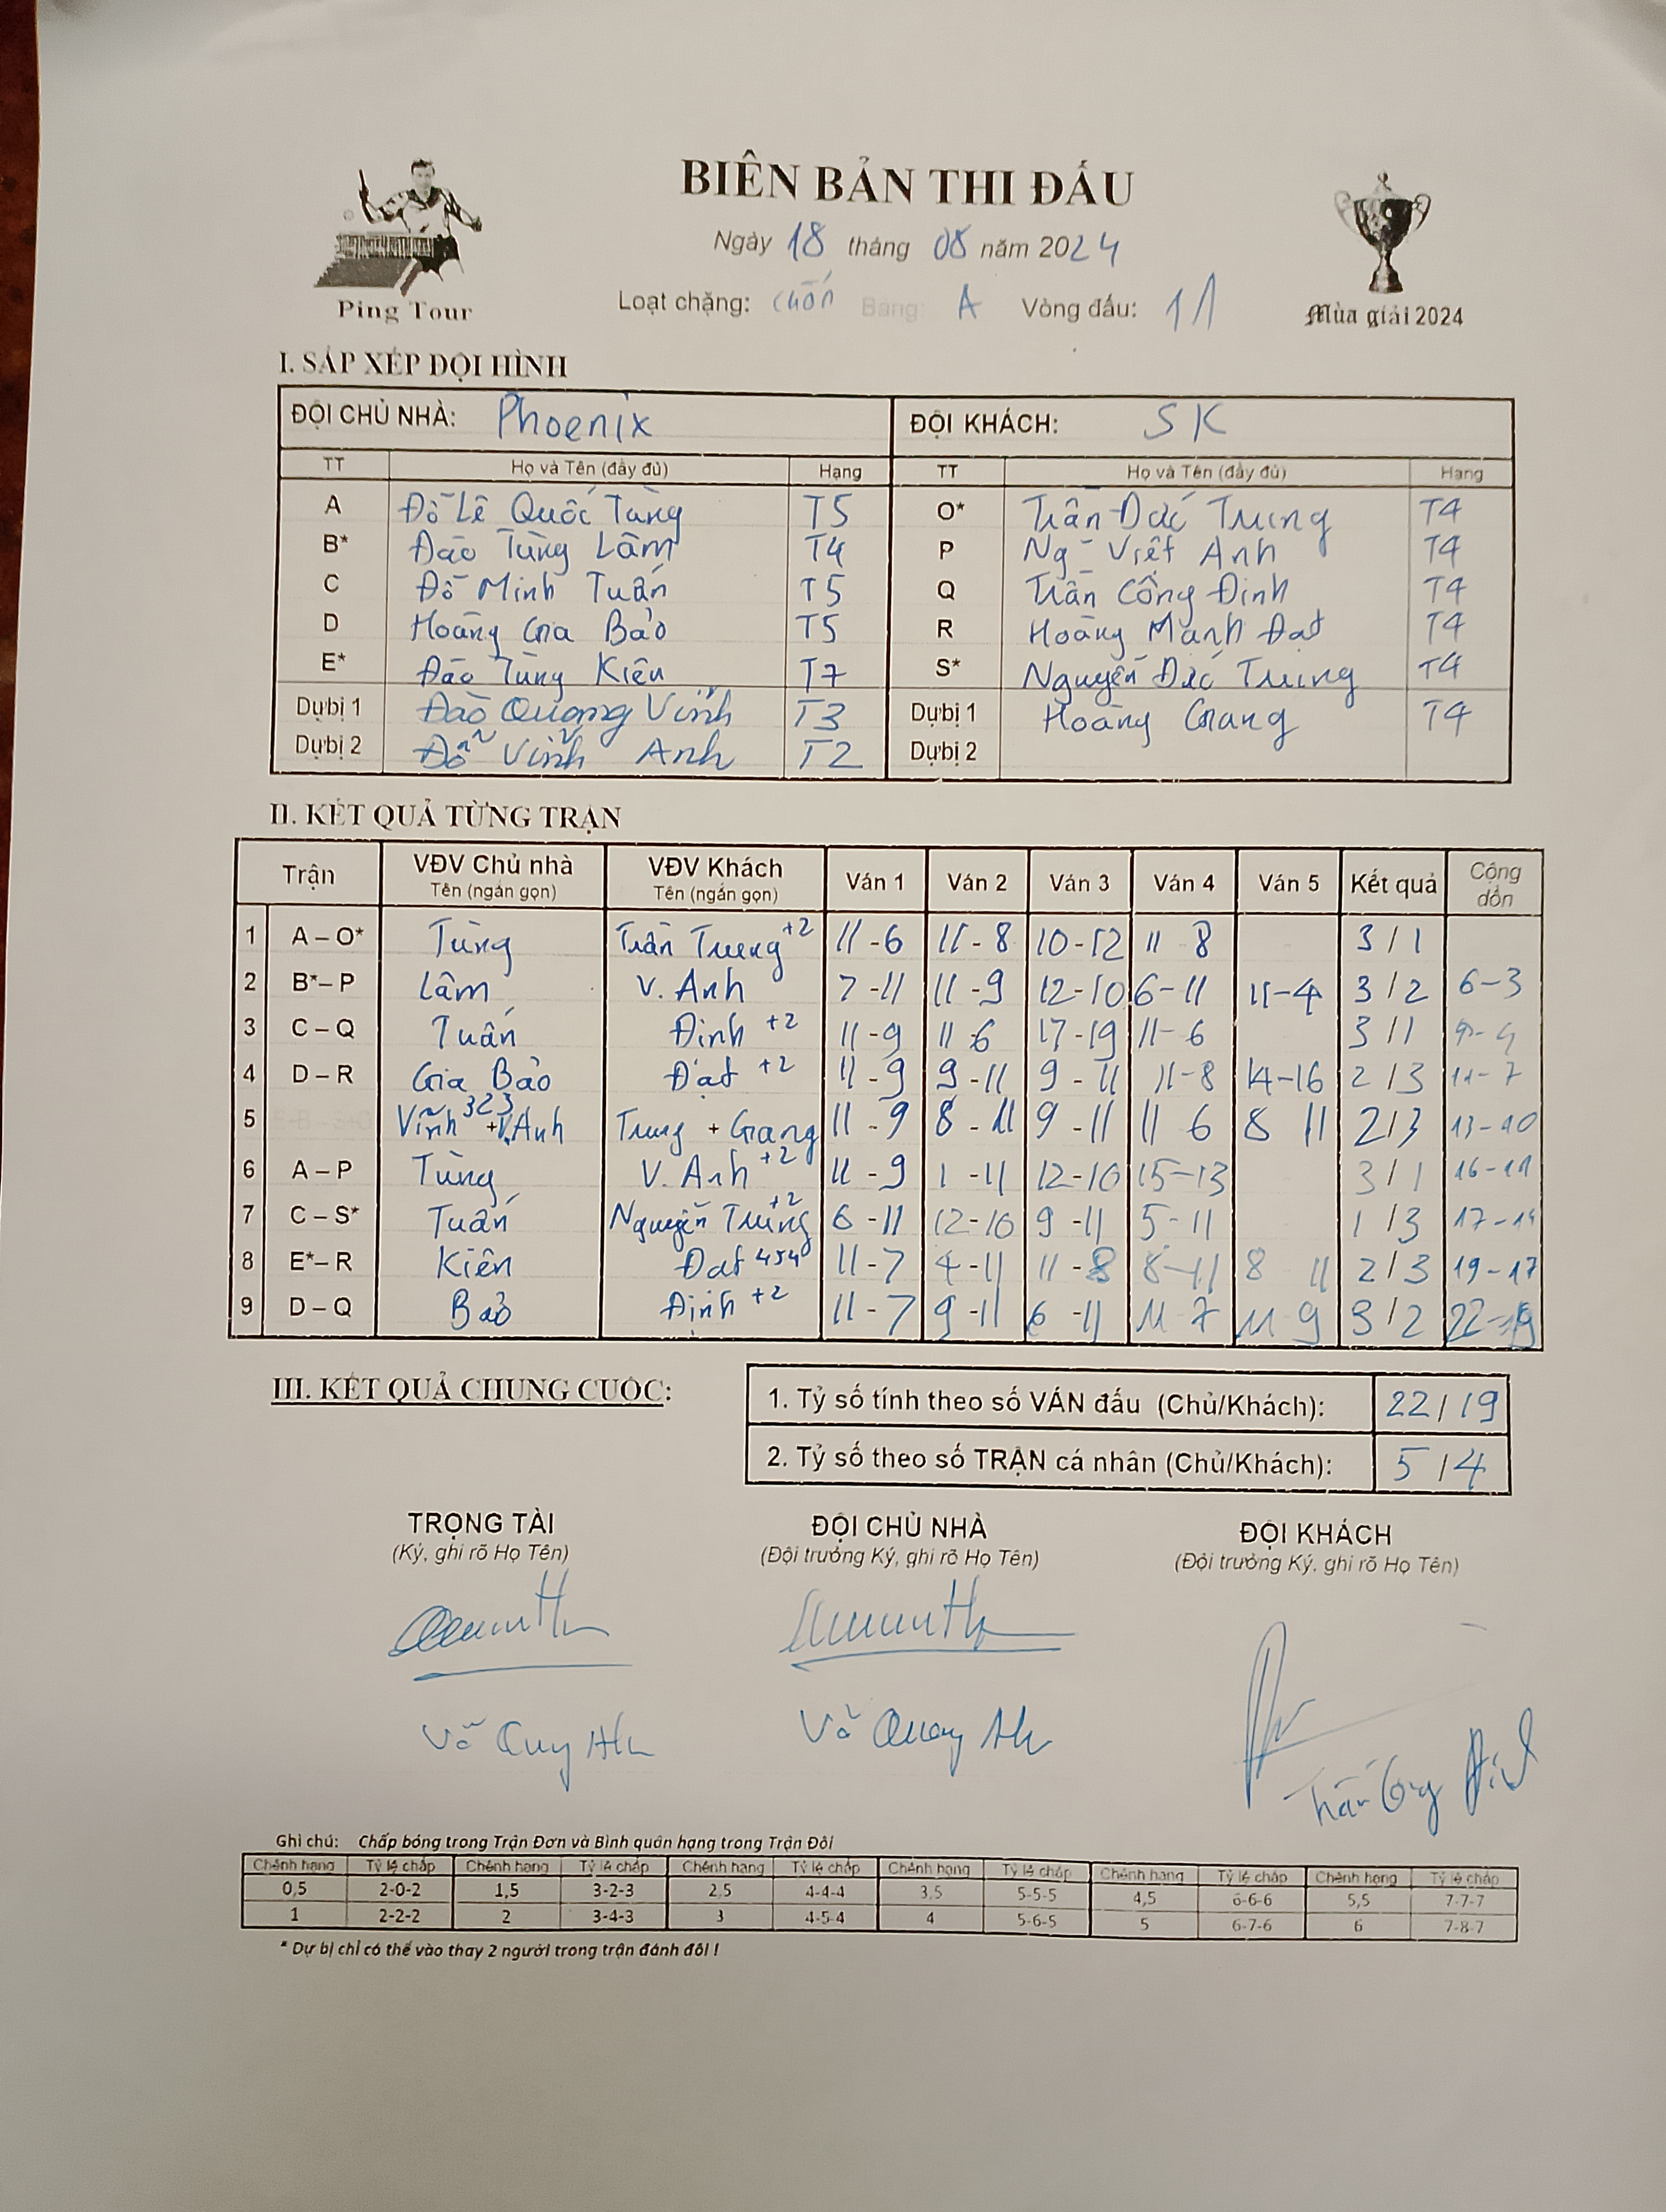 BIÊN BẢN THI ĐẤU
Ngày 18 tháng 08 năm 2024
Ping Tour
Loạt chặng: Bảng: A Vòng đấu: 11
Mùa giải 2024
I. SẮP XẾP ĐỘI HÌNH
ĐỘI CHỦ NHÀ: Phoenix ĐỘI KHÁCH: SK
TT Họ và Tên (đầy đủ) Hạng TT Họ và Tên (đầy đủ) Hạng
A Đỗ Lê Quốc Tùng T5 O* Trần Đức Trung T4
B* Đào Tùng Lâm T4 P Ng~ Việt Anh T4
C Đỗ Minh Tuấn T5 Q Trần Công Định T4
D Hoàng Gia Bảo T5 R Hoàng Mạnh Đạt T4
E* Đào Tùng Kiên T7 S* Nguyễn Đức Trung T4
Dự bị 1 Đào Quang Vinh T3 Dự bị 1 Hoàng Giang T4
Dự bị 2 Đỗ Vĩnh Anh T2 Dự bị 2
II. KẾT QUẢ TỪNG TRẬN
Trận VĐV Chủ nhà Tên (ngắn gọn) VĐV Khách Tên (ngắn gọn) Ván 1 Ván 2 Ván 3 Ván 4 Ván 5 Kết quả Cộng dồn
1 A – O* Tùng Trần Trung +2 11-6 11-8 10-12 11 8 3/1
2 B*– P Lâm V. Anh 7-11 11-9 12-10 6-11 11-4 3/2 6-3
3 C – Q Tuấn Định +2 11-9 11 6 17-19 11-6 3/1 9-4
4 D – R Gia Bảo Đạt +2 11-9 9-11 9-11 11-8 14-16 2/3 11-7
5 Vĩnh 323 + V.Anh Trung + Giang 11-9 8-11 9-11 11 6 8 11 2/3 13-10
6 A – P Tùng V. Anh +2 11-9 1-11 12-10 15-13 3/1 16-11
7 C – S* Tuấn Nguyễn Trung +2 6-11 12-10 9-11 5-11 1/3 17-14
8 E*– R Kiên Đạt 454 11-7 4-11 11-8 8-11 8 11 2/3 19-17
9 D – Q Bảo Định +2 11-7 9-11 6-11 11 7 11 9 3/2 22-19
III. KẾT QUẢ CHUNG CUỘC:
1. Tỷ số tính theo số VÁN đấu (Chủ/Khách): 22/19
2. Tỷ số theo số TRẬN cá nhân (Chủ/Khách): 5/4
TRỌNG TÀI ĐỘI CHỦ NHÀ ĐỘI KHÁCH
(Ký, ghi rõ Họ Tên) (Đội trưởng Ký, ghi rõ Họ Tên) (Đội trưởng Ký, ghi rõ Họ Tên)
Trần Công Định
Ghi chú: Chấp bóng trong Trận Đơn và Bình quân hạng trong Trận Đôi
Chênh hạng Tỷ lệ chấp Chênh hạng Tỷ lệ chấp Chênh hạng Tỷ lệ chấp Chênh hạng Tỷ lệ chấp Chênh hạng Tỷ lệ chấp Chênh hạng Tỷ lệ chấp
0,5 2-0-2 1,5 3-2-3 2,5 4-4-4 3,5 5-5-5 4,5 6-6-6 5,5 7-7-7
1 2-2-2 2 3-4-3 3 4-5-4 4 5-6-5 5 6-7-6 6 7-8-7
* Dự bị chỉ có thể vào thay 2 người trong trận đánh đôi !